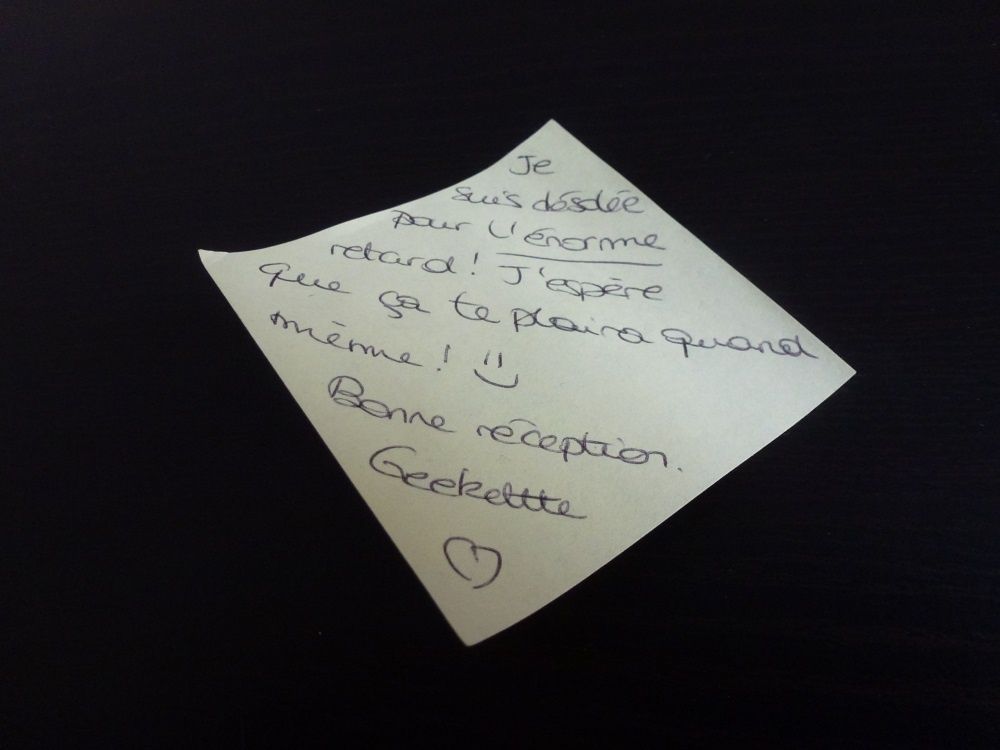 Je
suis désolée
pour l'énorme
retard! J'espère
que ça te plaira quand
même! :)
Bonne réception.
Geekette
♡